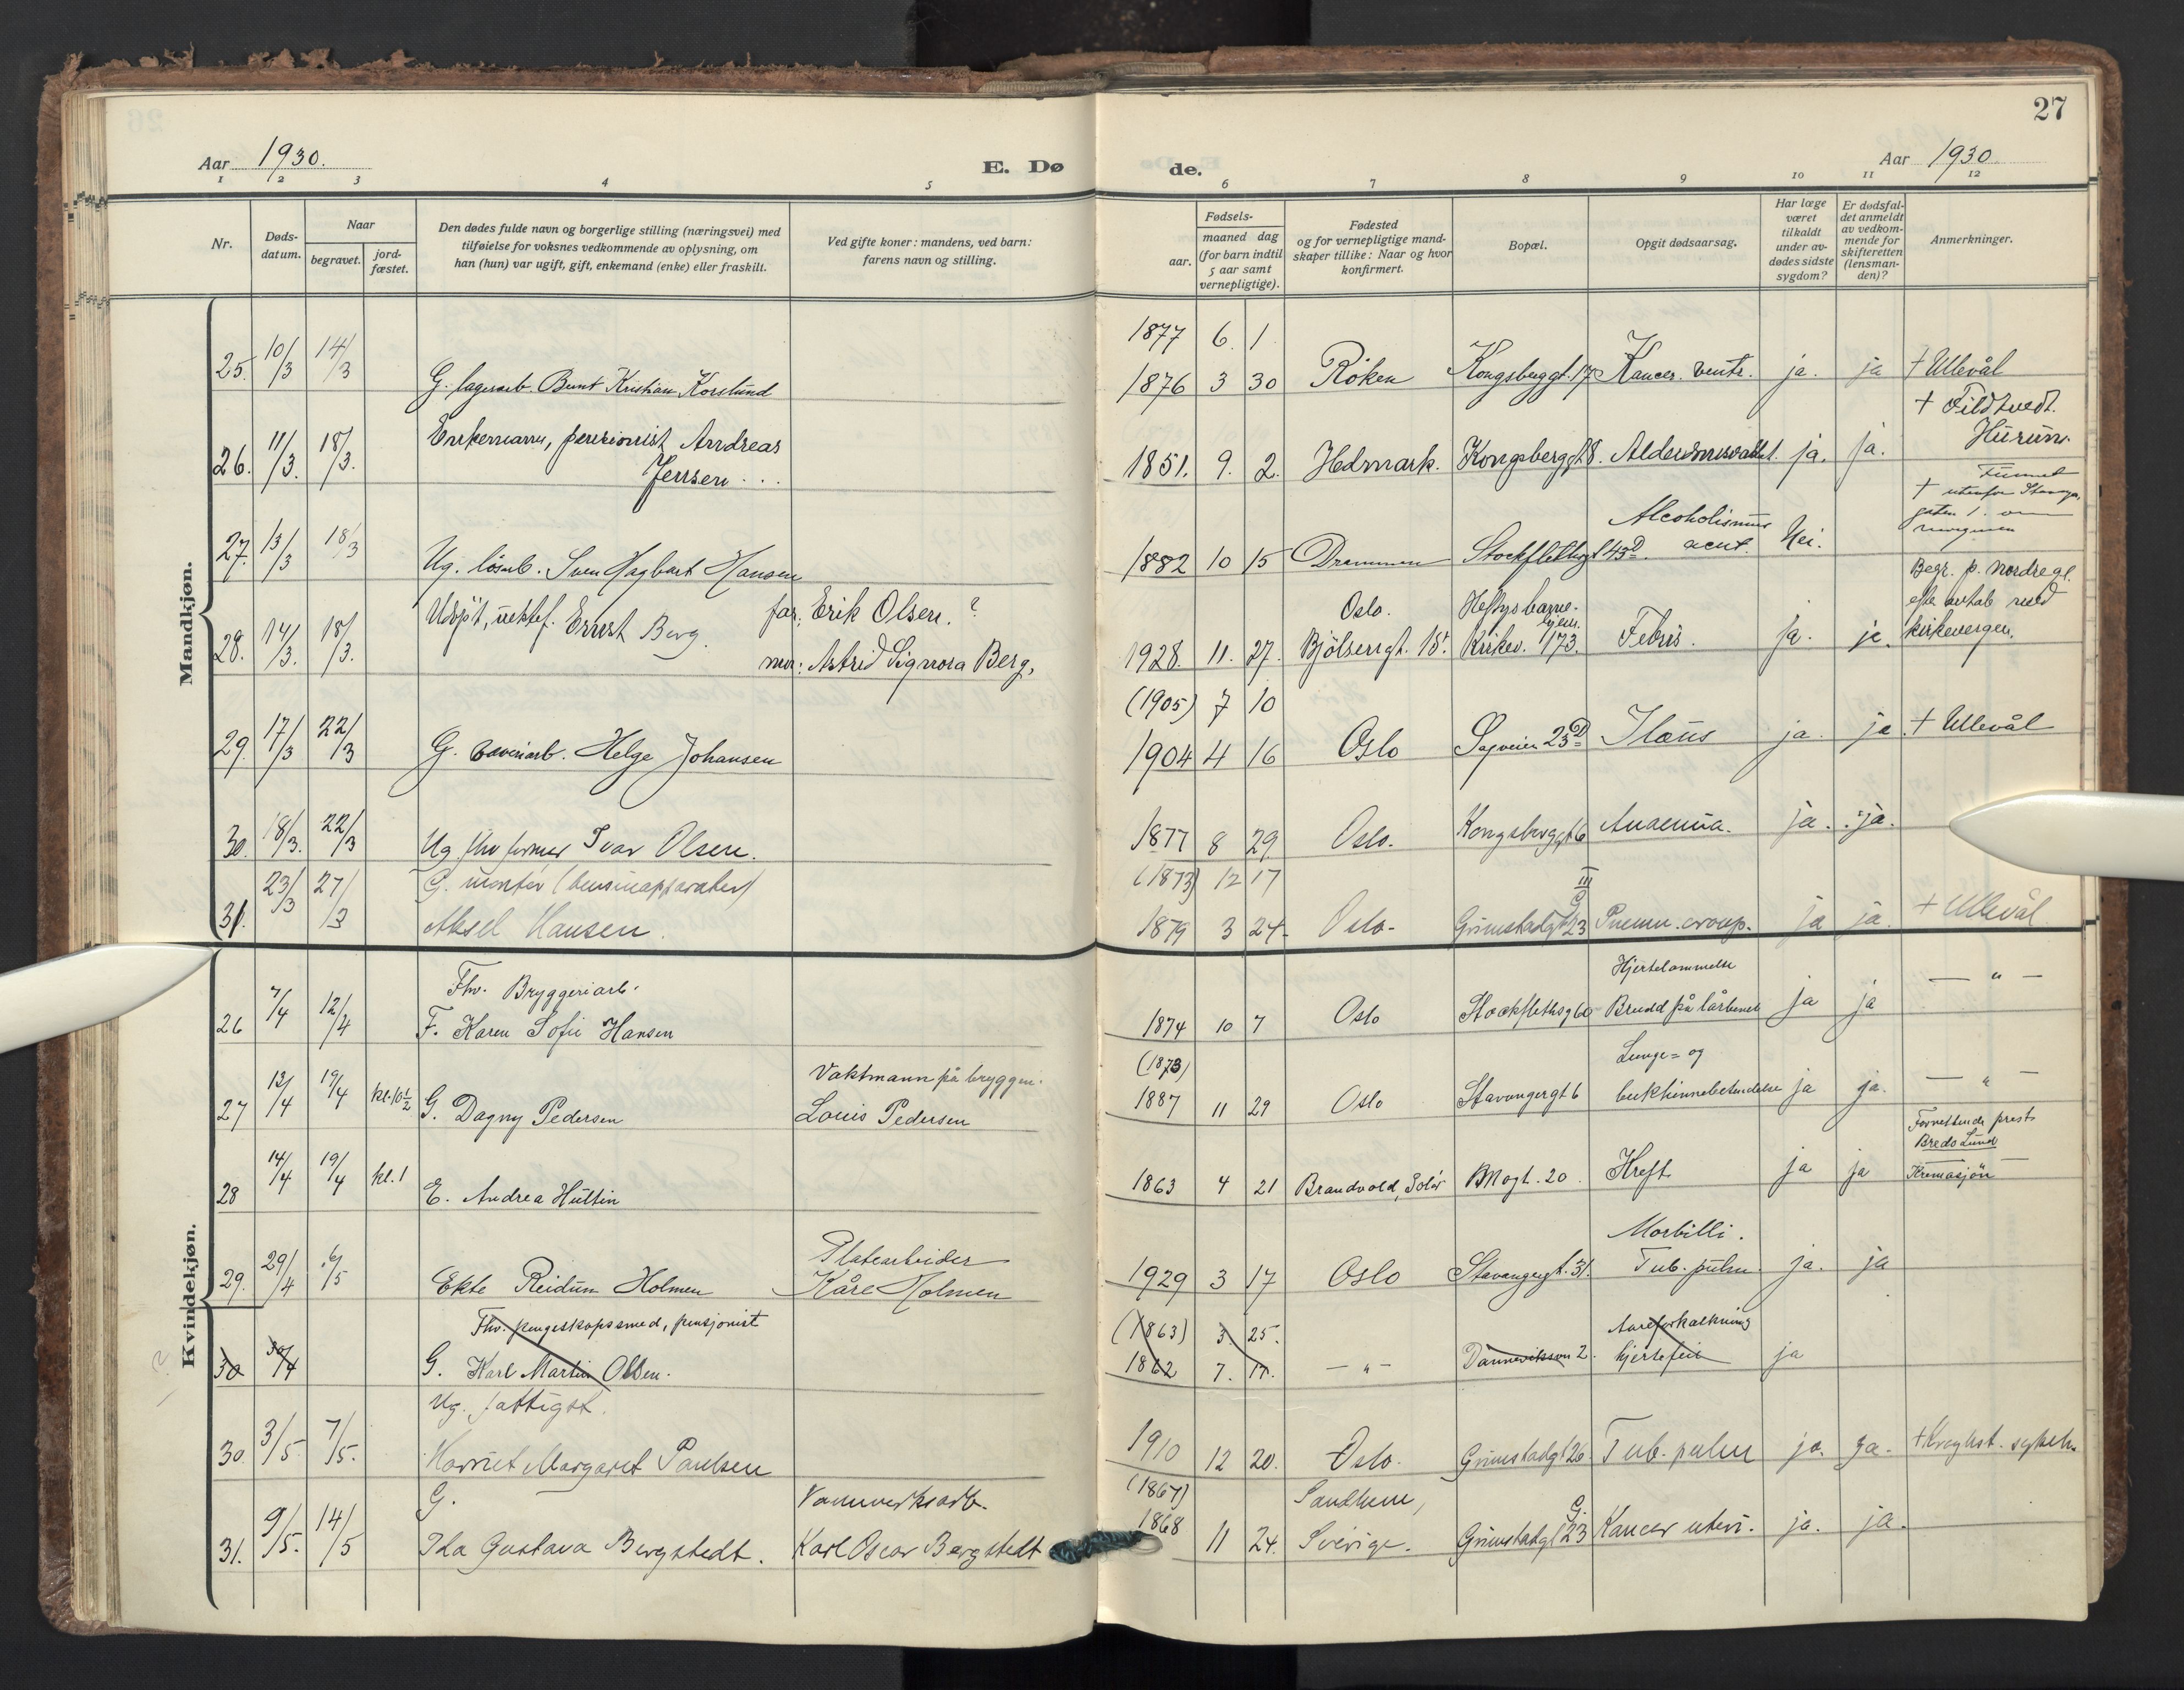 27
Aar 1930.
E. Dø
de.
Aar 1930
1 2 3 4 5 6 7 8 9 10 11 12
Nr.
Døds-
datum.
Naar
begravet.
jord-
fæstet.
Den dødes fulde navn og borgerlige stilling (næringsvei) med
tilføielse for voksnes vedkommende av oplysning, om
han (hun) var ugift, gift, enkemand (enke) eller fraskilt.
Ved gifte koner: mandens, ved barn:
farens navn og stilling.
Fødsels-
aar.
maaned dag
(for barn indtil
5 aar samt
vernepligtige).
Fødested
og for vernepligtige mand-
skaper tillike: Naar og hvor
konfirmert.
Bopæl.
Opgit dødsaarsag.
Har læge
været
tilkaldt
under av-
dødes sidste
sygdom?
Er dødsfal-
det anmeldt
av vedkom-
mende for
skifteretten
(lensman-
den)?
Anmerkninger.
Mandkjøn.
1877 6. 1
25. 10/3 14/3 G. lagerarb. Bernt Kristian Korslund 1876 3 30 Røken Kongsberggt. 17 Kancer. ventr. ja. ja + Ullevål
+ Fildtvedt.
Hurum.
26. 11/3. 18/3. Enkemann, pensionist Andreas
Jensen 1851. 9. 2. Hedmark. Kongsberggt. 8. ja. ja.
Funnet
+ utenfor
gaten 1. om
morgenen
Alcoholismus
27. 13/3 18/3 Ug. løsarb. Sven Hagbart Hansen 1882 10 15 Drammen Stockflethsgt 43D. acut. Nei.
Begr. p. Nordre gl.
efter avtale med
kirkevergen.
28. 14/3. 18/3. Udøpt, uektef. Ernst Berg. far: Erik Olsen. ?
mor: Astrid Signora Berg,
Oslo. Heftys barne-
hjem.
1928. 11. 27. Bjølsengt. 18. Kirkev. 173. Febris. ja. ja.
(1905) 7 10
29. 17/3 22/3 G. Helge Johansen 1904 4 16 Oslo Sagveien 23D Ileus ja. ja. + Ullevål
30. 18/3. 22/3 Ug. fhv. former Ivar Olsen. 1877 8 29. Oslo. Kongsberggt 6 Anaemia. ja. ja.
(1873) 12 17
31. 23/3 27/3 G. montør (bensinapparater)
Aksel Hansen. 1879 3 24 Oslo. Grimstadgt 23 III Pneum. croup. ja ja. + Ullevål
Kvindekjøn.
Hjertelammelse
26 7/4 12/4 Fhv. Bryggeriarb.
F. Karen Sofie Hansen 1874 10 7 Oslo Stockflethsg 60 Brudd på lårbenet ja ja — " —
(1873) Lunge- og
27 13/4 19/4 kl. 10½ G. Dagny Pedersen Vaktmann på bryggen.
Louis Pedersen 1887 11 29 Oslo Stavangergt 6 bukhinnebetendelse ja ja. — " —
Forrettende prest
Bredo Lund
28 14/4 19/4 kl. 1 E. Andrea Hultin 1863 4 21 Brandvold, Solør 20 Kreft ja ja Kremasjon
Morbilli.
29. 29/4 6/5 Ekte Reidun Holmen Platearbeider
Kåre Holmen 1929 3 17 Oslo Stavangergt. 31. Tub. pulm. ja. ja
30 30/4 Fhv. pengeskapssmed, pensjonist
G. Karl Martin Olsen. (1863) 3. 25.
1862 7. 17. — " — Danneviksvn 2. Aareforkalkning
hjertefeil ja
30. 3/5 7/5. Ug. fattigst.
Harriet Margaret Paulsen 1910 12 20. Oslo. Grimstadgt 26 Tub. pulm ja. ja. + Kroghst. sykehus
(1867) Sandhem,
31. 9/5. 14/5 G.
Ida Gustava Bergstedt. Vannverksarb.
Karl Oscar Bergstedt 1868 11 24. Sverige. Grimstadgt 23 Kancer uteri. ja. ja.